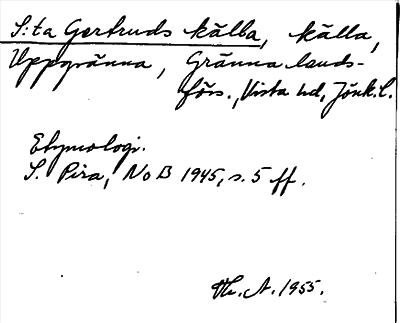 S:ta Gertruds källa, källa,
Uppgränna, Gränna lands-
förs., Vista hd, Jönk.l.
Etymologi.
S. Pira, NoB 1945, s. 5 ff.
Th. A. 1955.